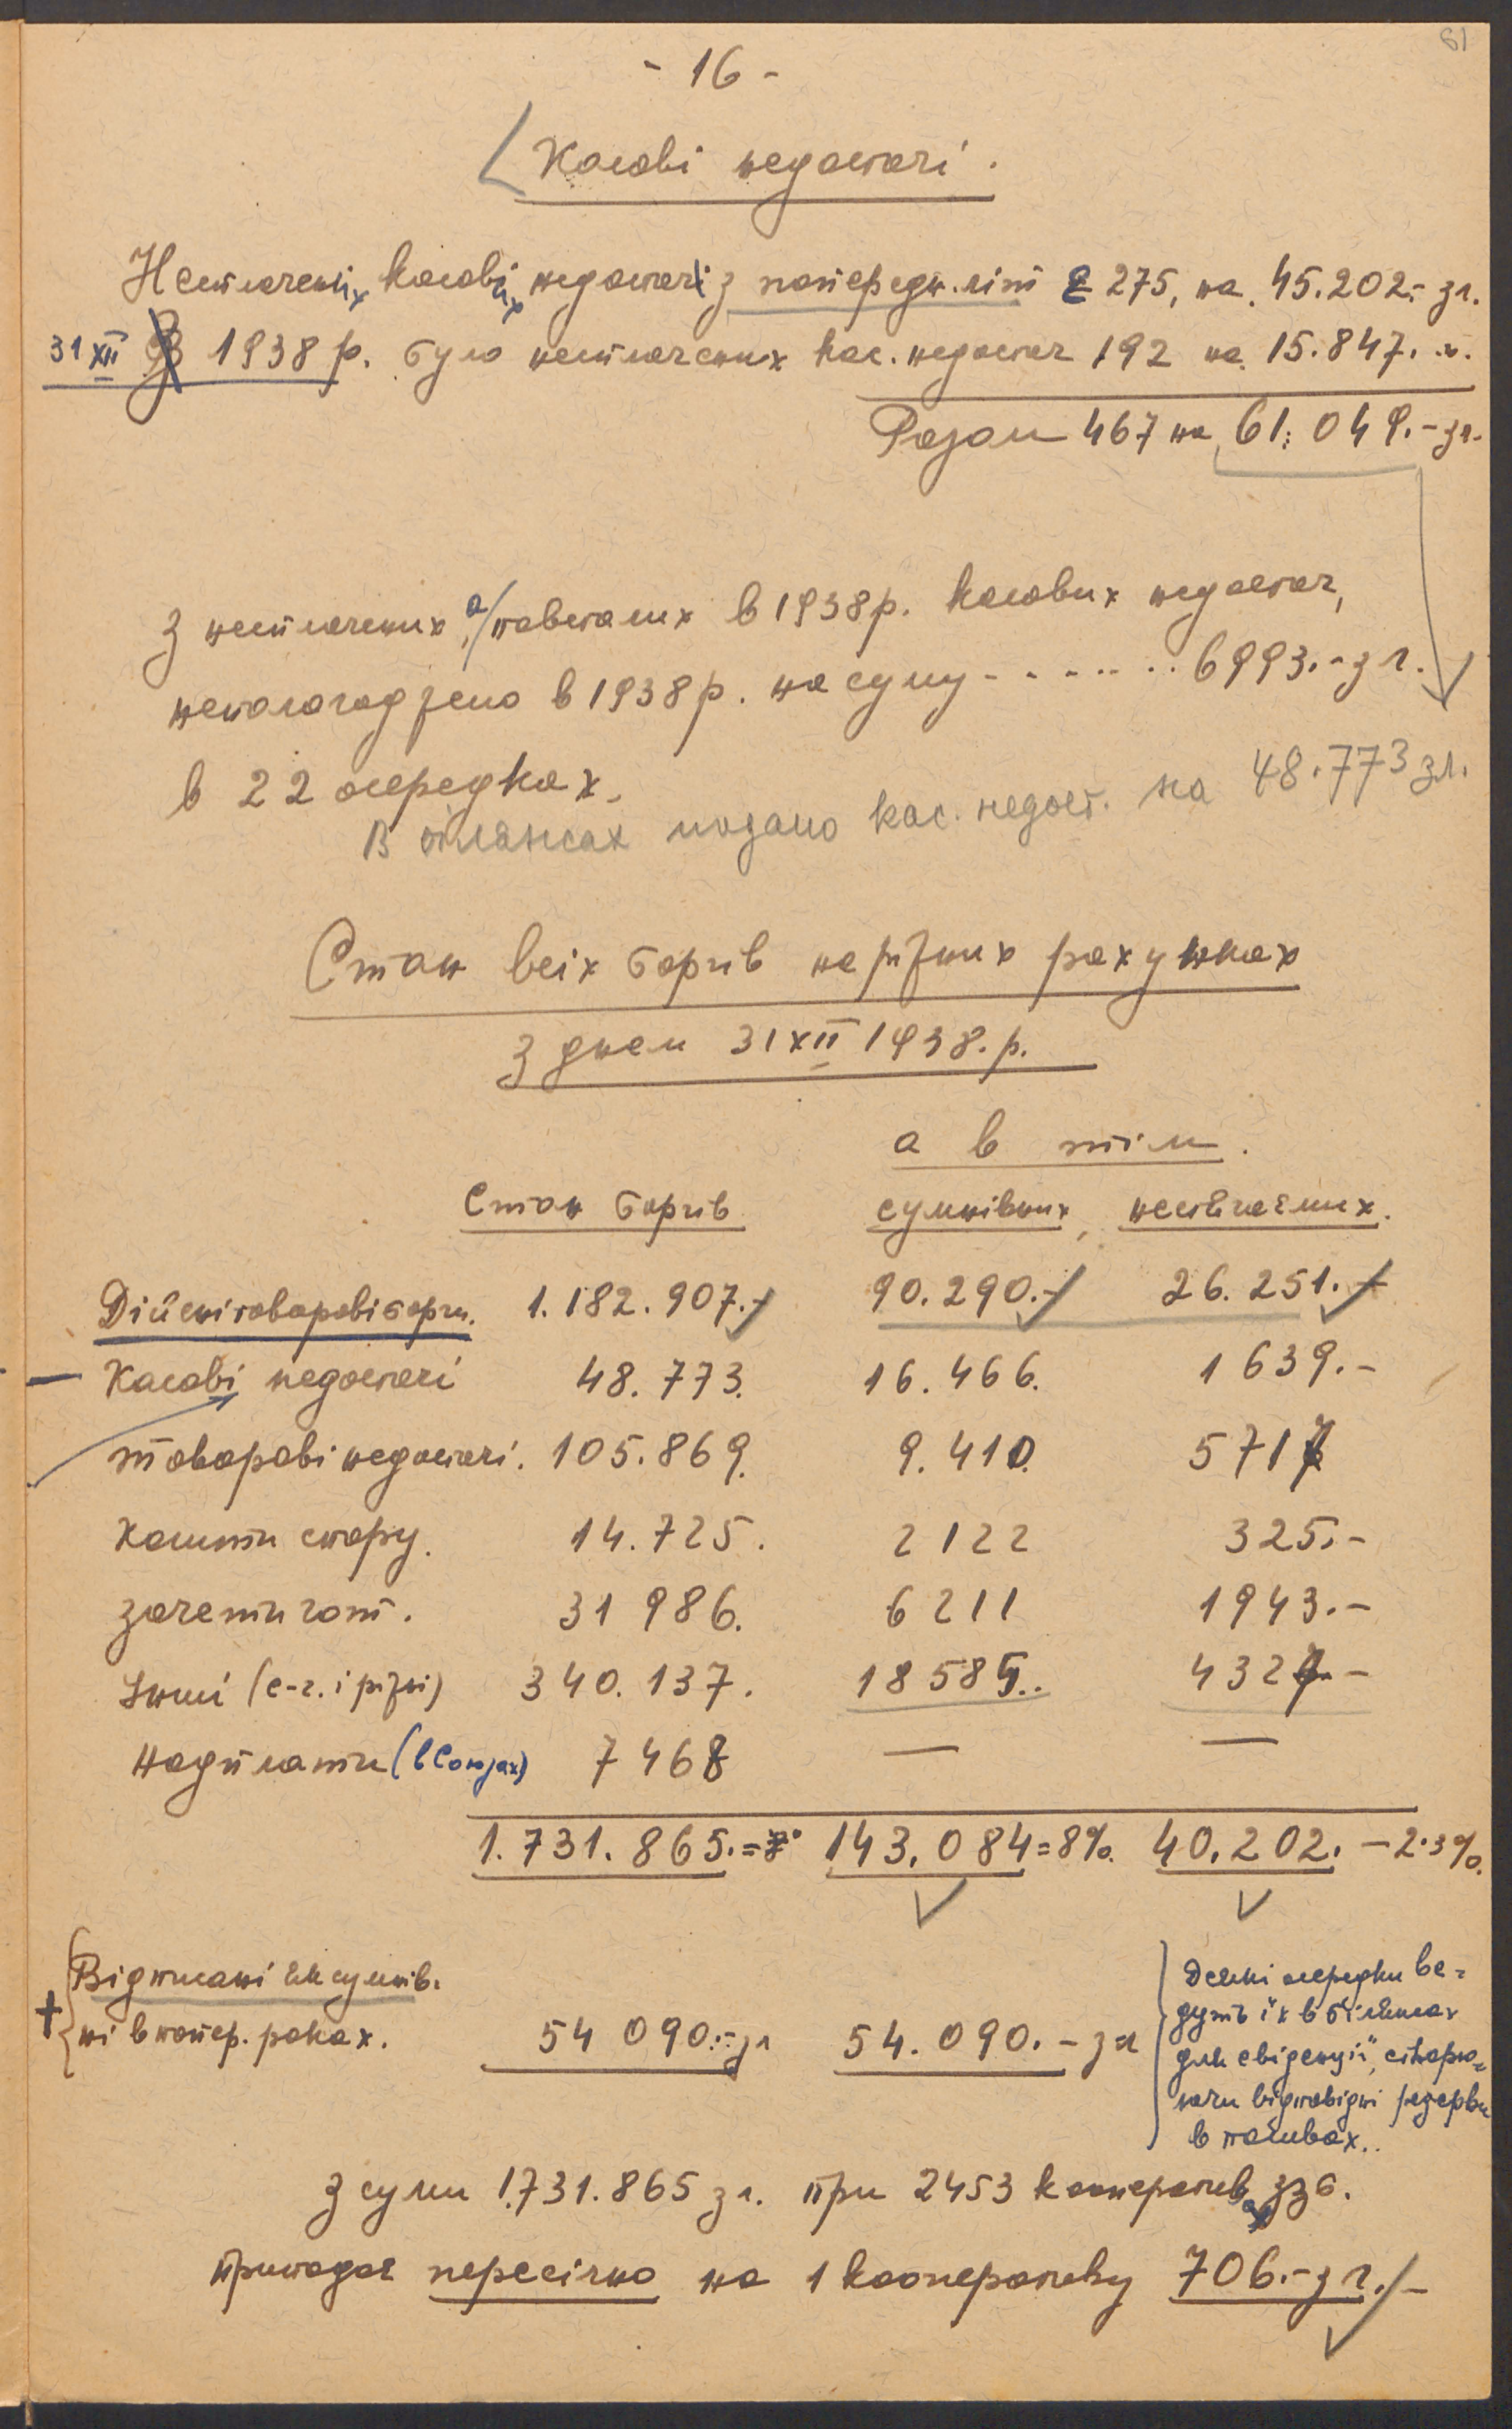 61
- 16 -
Касові недостачі.
Несплачених касових недостач з попередн. літ є 275, на 45.202.- зл.
31 XII 1938 р. було несплачених кас. недостач 192 на 15.847.-
Разом 467 на 61.049.- зл.
З несплачених, а повсталих в 1938 р. касових недостач,
неполагоджено в 1938 р. на суму - . - . - . . 6993.- зл.
в 22 осередках.
В білянсах подано кас. недост. на 48.773 зл.
Стан всіх боргів на різних рахунках
з днем 31 XII 1938. р.
а в тім.
Стан боргів сумнівних, нестягальних.
Дійсні товарові борги. 1.182.907.- 90.290.- 26.251.-
Касові недостачі 48.773. 16.466. 1639.-
товарові недостачі. 105.869. 9.410. 5717
Кошти спору. 14.725. 2122 325.-
зачети гот. 31 986. 6211 1943.-
Інші (с-г. і різні) 340.137. 18585.. 4327.-
Надплати (в Союзах) 7468 — —
1.731.865.= 143.084=8%. 40.202. - 2.3%.
Відписані як сумнів-
ні в попер. роках. 54 090.- зл 54.090.- зл
Деякі осередки ве-
дуть їх в білянсах
для евіденції, створю-
ючи відповідні резерви
в пасивах..
З суми 1.731.865 зл. при 2453 кооператив
припадає пересічно на 1 кооперативу 706.- зл.-